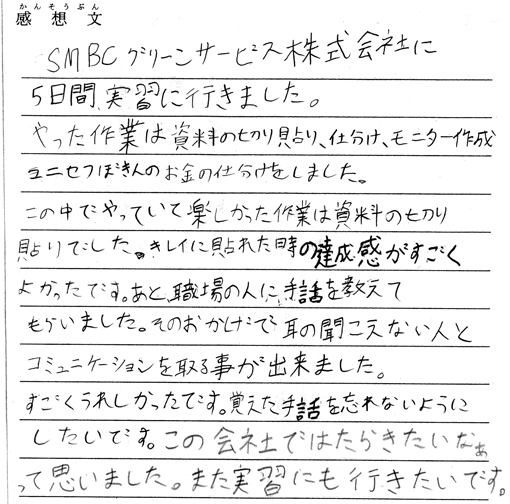 かんそうぶん
感想文
SMBCグリーンサービス株式会社に
5日間、実習に行きました。
やった作業は資料の切り貼り、仕分け、モニター作成
ユニセフぼきんのお金の仕分けをしました。
この中でやっていて楽しかった作業は資料の切り
貼りでした。キレイに貼れた時の達成感がすごく
よかったです。あと、職場の人に手話を教えて
もらいました。そのおかげで耳の聞こえない人と
コミュニケーションを取る事が出来ました。
すごくうれしかったです。覚えた手話を忘れないように
したいです。この会社ではたらきたいなぁ
って思いました。また実習にも行きたいです。